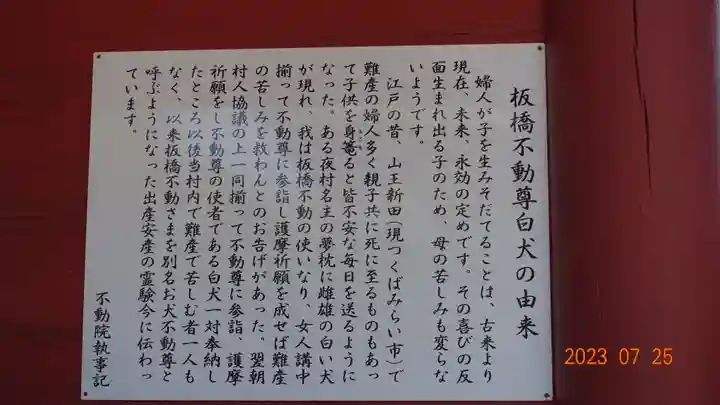 板橋不動尊白犬の由来
婦人が子を生みそだてることは、古来より
現在、未来、永劫の定めです。その喜びの反
面生まれ出る子のため、母の苦しみも変らな
いようです。
江戸の昔、山王新田(現つくばみらい市)で
難産の婦人多く親子共に死に至るものもあっ
て子供を身篭ると皆不安な毎日を送るように
なった。ある夜村名主の夢枕に雌雄の白い犬
が現れ、我は板橋不動の使いなり、女人講中
揃って不動尊に参詣し護摩祈願を成せば難産
の苦しみを救わんとのお告げがあった。翌朝
村人協議の上一同揃って不動尊に参詣、護摩
祈願をし不動尊の使者である白犬一対奉納し
たところ以後当村内で難産で苦しむ者一人も
なく、以来板橋不動さまを別名お犬不動尊と
呼ぶようになった出産安産の霊験今に伝わっ
ています。
不動院執事記
2023 07 25